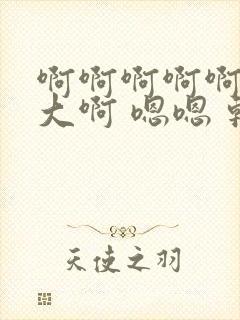 啊啊啊啊啊
大啊 嗯嗯
天使之羽